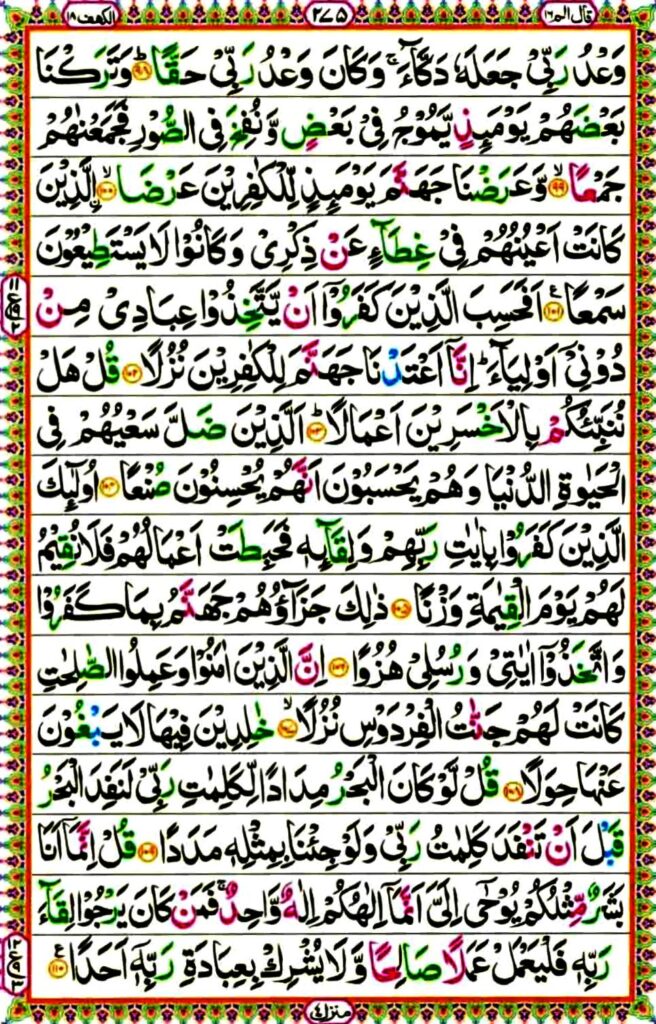 قال الم ١٦ ٢٧٥ الكهف ١٨
وَعْدُ رَبِّىْ جَعَلَهٗ دَكَّآءَ ۚ وَكَانَ وَعْدُ رَبِّىْ حَقًّا ؕ ﴿۹۸﴾ وَتَرَكْنَا
بَعْضَهُمْ يَوْمَئِذٍ يَّمُوْجُ فِىْ بَعْضٍ وَّنُفِخَ فِى الصُّوْرِ فَجَمَعْنٰهُمْ
جَمْعًا ۙ ﴿۹۹﴾ وَّعَرَضْنَا جَهَنَّمَ يَوْمَئِذٍ لِّلْكٰفِرِيْنَ عَرْضَا ۙ ﴿۱۰۰﴾ اۨلَّذِيْنَ
كَانَتْ اَعْيُنُهُمْ فِىْ غِطَآءٍ عَنْ ذِكْرِىْ وَكَانُوْا لَا يَسْتَطِيْعُوْنَ
سَمْعًا ﴿۱۰۱﴾ اَفَحَسِبَ الَّذِيْنَ كَفَرُوْۤا اَنْ يَّتَّخِذُوْا عِبَادِىْ مِنْ
دُوْنِىْۤ اَوْلِيَآءَ ؕ اِنَّاۤ اَعْتَدْنَا جَهَنَّمَ لِلْكٰفِرِيْنَ نُزُلًا ﴿۱۰۲﴾ قُلْ هَلْ
نُنَبِّئُكُمْ بِالْاَخْسَرِيْنَ اَعْمَالًا ؕ ﴿۱۰۳﴾ اَلَّذِيْنَ ضَلَّ سَعْيُهُمْ فِى
الْحَيٰوةِ الدُّنْيَا وَهُمْ يَحْسَبُوْنَ اَنَّهُمْ يُحْسِنُوْنَ صُنْعًا ﴿۱۰۴﴾ اُولٰٓئِكَ
الَّذِيْنَ كَفَرُوْا بِاٰيٰتِ رَبِّهِمْ وَلِقَآئِهٖ فَحَبِطَتْ اَعْمَالُهُمْ فَلَا نُقِيْمُ
لَهُمْ يَوْمَ الْقِيٰمَةِ وَزْنًا ﴿۱۰۵﴾ ذٰلِكَ جَزَآؤُهُمْ جَهَنَّمُ بِمَا كَفَرُوْا
وَاتَّخَذُوْۤا اٰيٰتِىْ وَرُسُلِىْ هُزُوًا ﴿۱۰۶﴾ اِنَّ الَّذِيْنَ اٰمَنُوْا وَعَمِلُوا الصّٰلِحٰتِ
كَانَتْ لَهُمْ جَنّٰتُ الْفِرْدَوْسِ نُزُلًا ۙ ﴿۱۰۷﴾ خٰلِدِيْنَ فِيْهَا لَا يَبْغُوْنَ
عَنْهَا حِوَلًا ﴿۱۰۸﴾ قُلْ لَّوْ كَانَ الْبَحْرُ مِدَادًا لِّكَلِمٰتِ رَبِّىْ لَنَفِدَ الْبَحْرُ
قَبْلَ اَنْ تَنْفَدَ كَلِمٰتُ رَبِّىْ وَلَوْ جِئْنَا بِمِثْلِهٖ مَدَدًا ﴿۱۰۹﴾ قُلْ اِنَّمَاۤ اَنَا
بَشَرٌ مِّثْلُكُمْ يُوْحٰۤى اِلَىَّ اَنَّمَاۤ اِلٰهُكُمْ اِلٰهٌ وَّاحِدٌ ۚ فَمَنْ كَانَ يَرْجُوْا لِقَآءَ
رَبِّهٖ فَلْيَعْمَلْ عَمَلًا صَالِحًا وَّلَا يُشْرِكْ بِعِبَادَةِ رَبِّهٖۤ اَحَدًا ﴿۱۱۰﴾ ع
منزل ٤